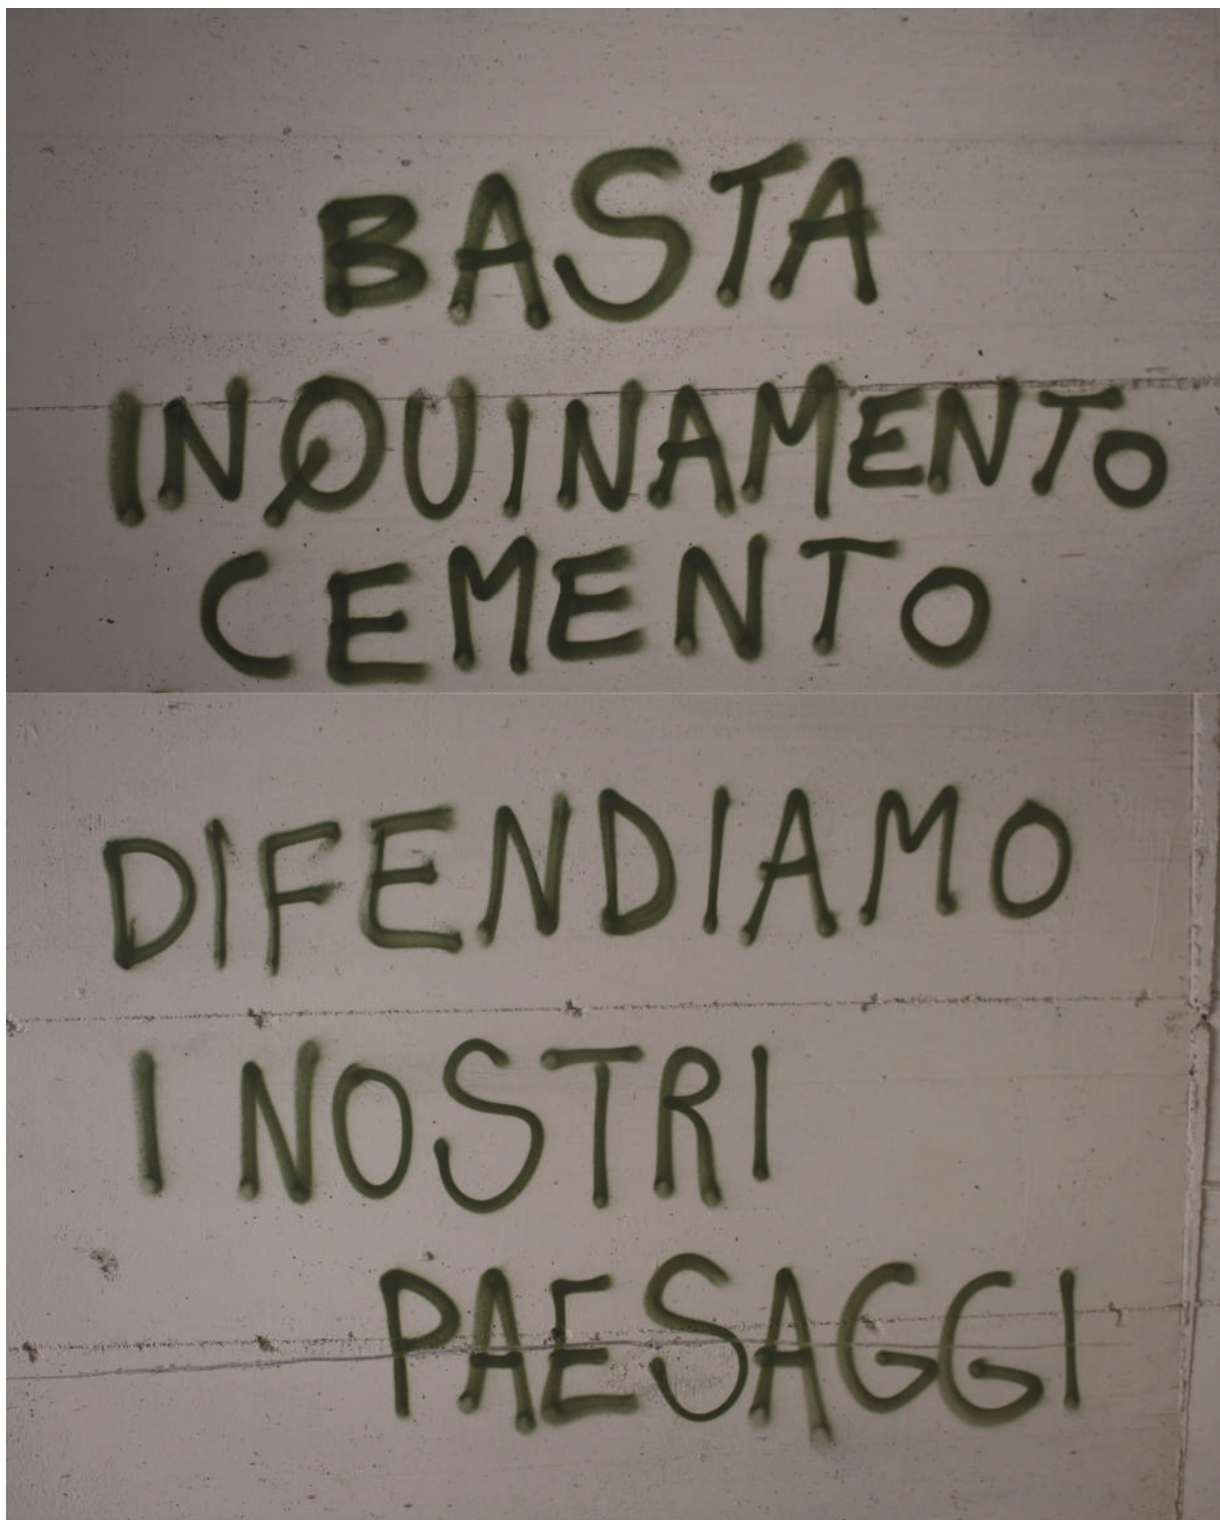 BASTA
INQUINAMENTO
CEMENTO
DIFENDIAMO
I NOSTRI
PAESAGGI